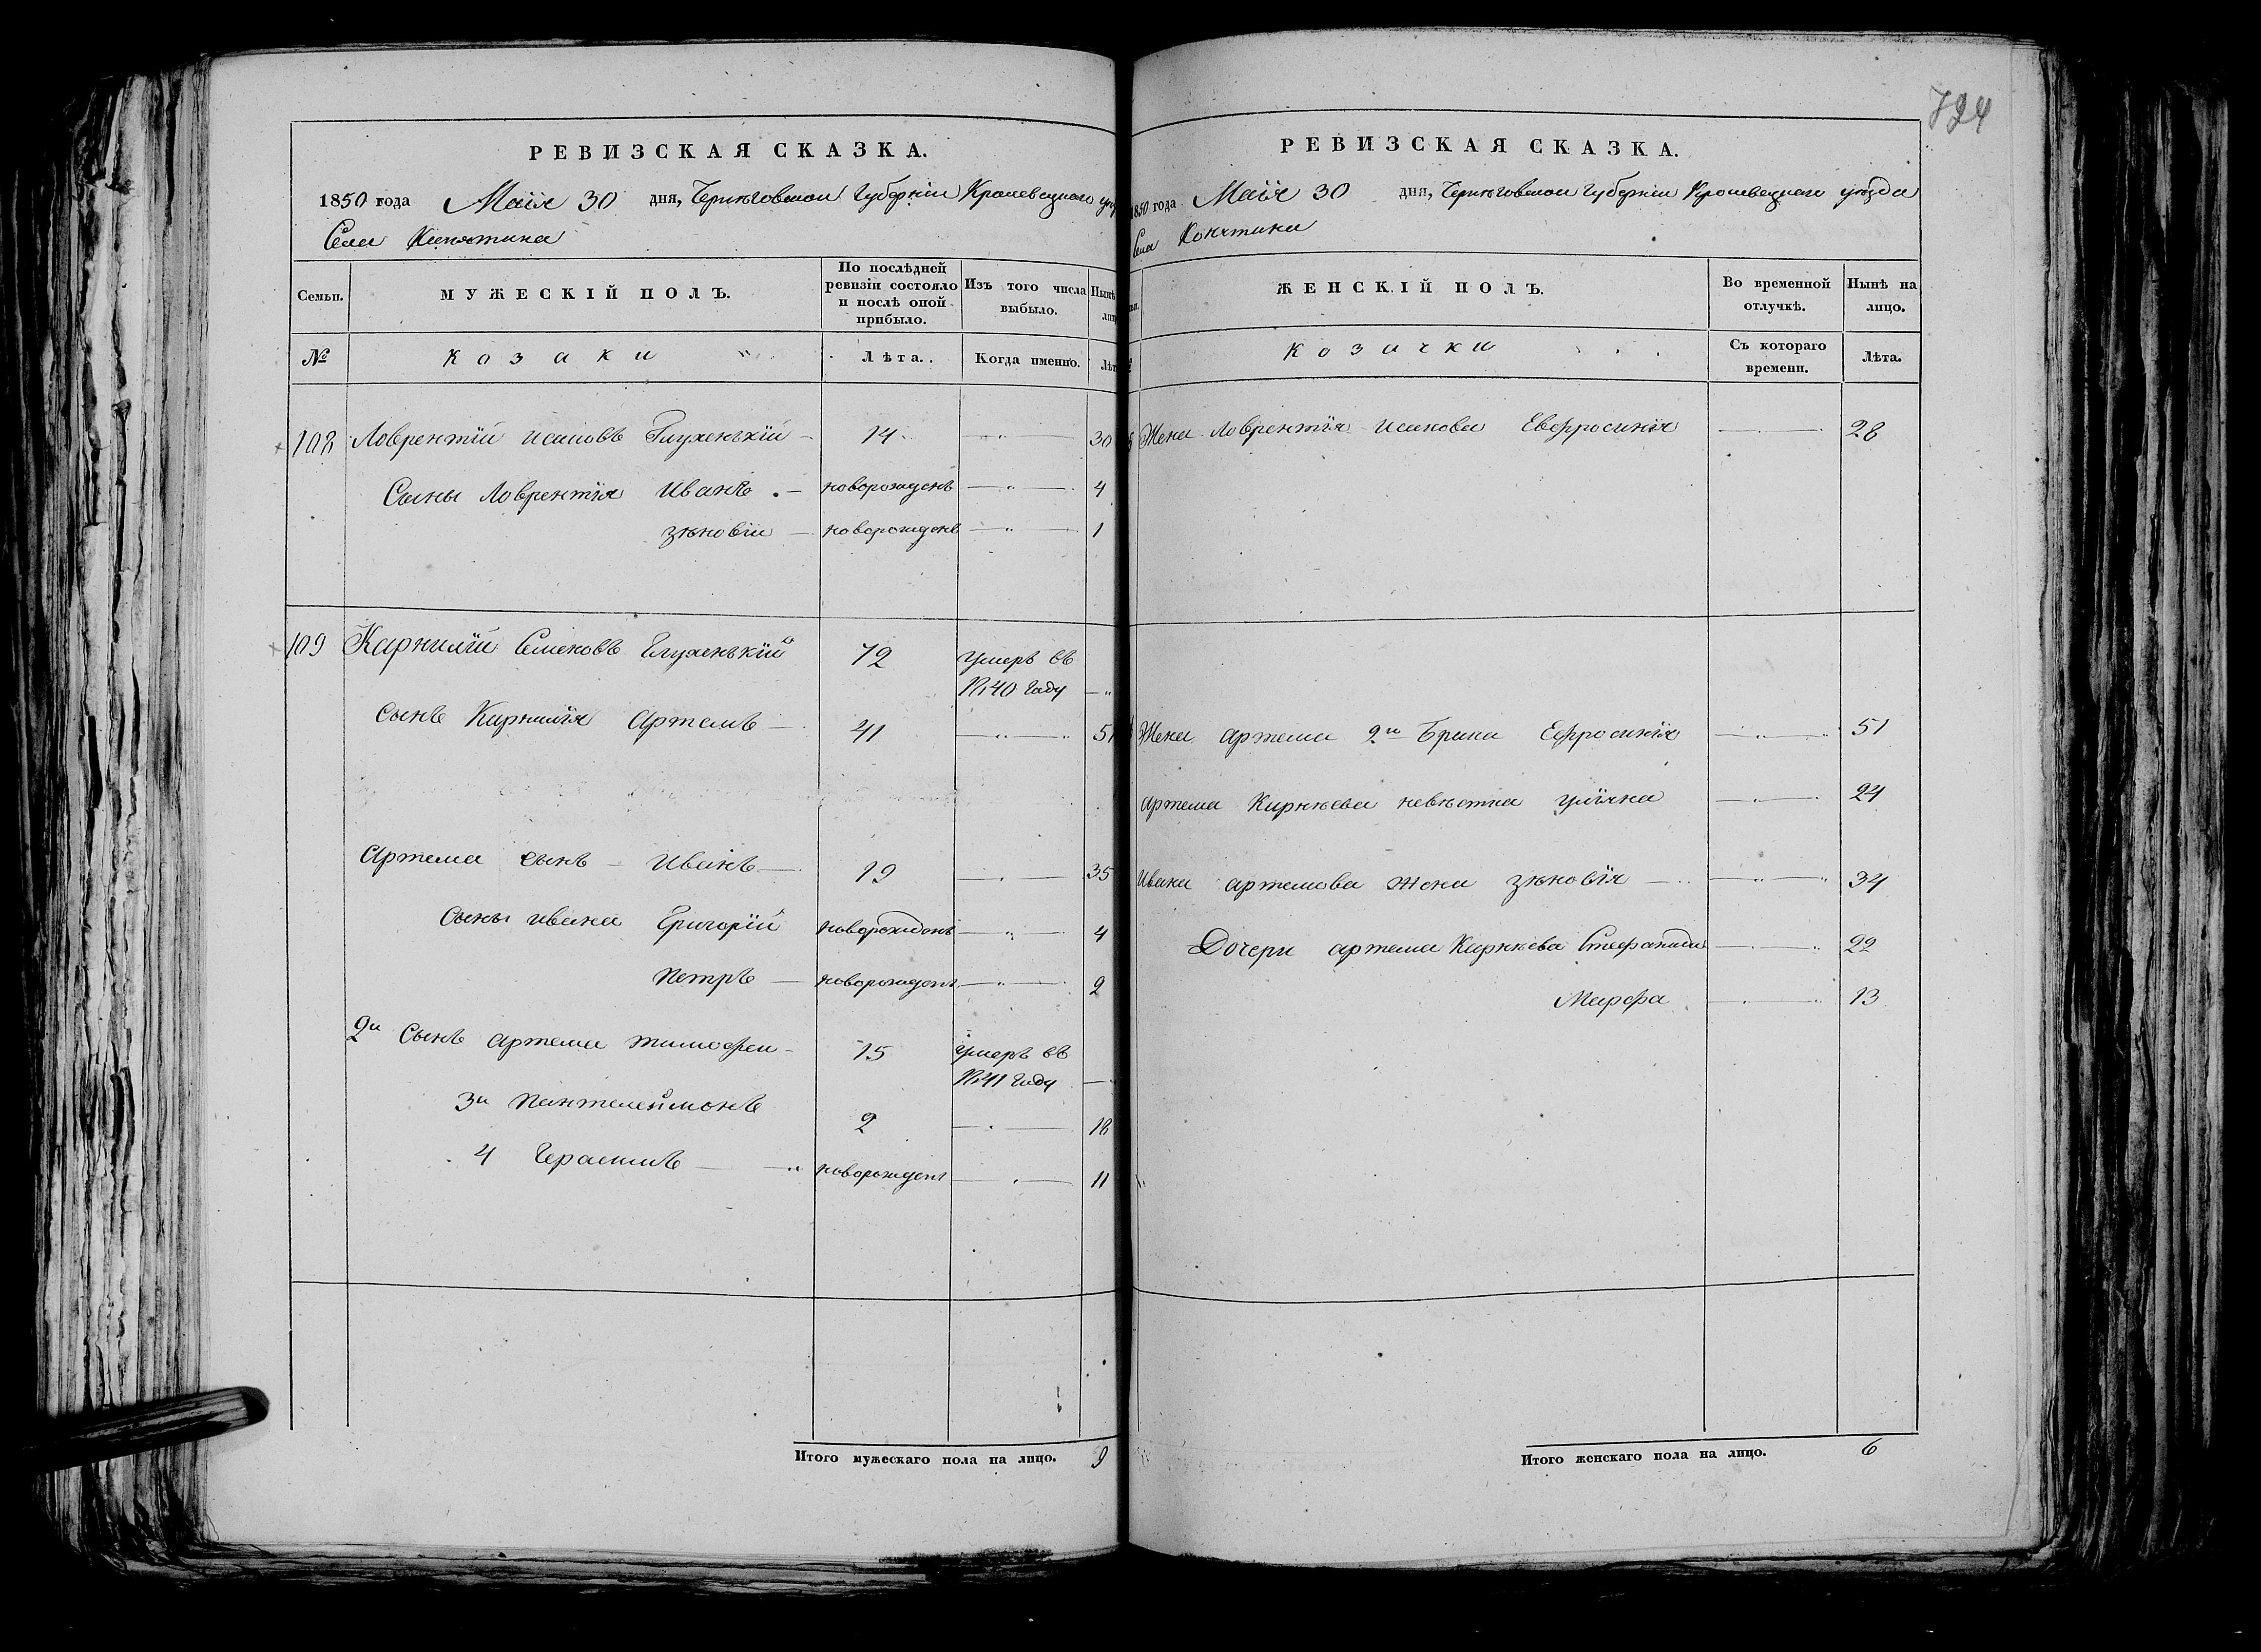 724
РЕВИЗСКАЯ СКАЗКА.
1850 года Маія 30 дня, Черниговской Губерніи Кролевецкаго
Села
Семьи.
МУЖЕСКІЙ ПОЛЪ.
По послѣдней
ревизіи состояло
и послѣ оной
прибыло.
Изъ того числа
выбыло.
Нынѣ
№
козаки
Лѣта.
Когда именно.
108 Лаврентій Исаковъ Глухенькій 14 30
Сыны Лаврентія Иванъ новорожденъ 4
Зѣновіи новорожденъ 1
109 Карнилій Семеновъ Глухенькій 72 умеръ въ
1840 Году
Сынъ Карнилія Артемъ 41 51
Артема сынъ Иванъ 19 35
Сыны Ивана Григорій новорожденъ 4
Петръ новорожденъ 2
2й Сынъ Артема Тимофеи 15 умеръ въ
1841 Году
3й Пантелеймонъ 2 18
4 Герасимъ новорожденъ 11
Итого мужескаго пола на лицо. 9
РЕВИЗСКАЯ СКАЗКА.
1850 года Маія 30 дня, Черниговской Губерніи Кролевецкаго уѣзда
Села
ЖЕНСКІЙ ПОЛЪ.
Во временной
отлучкѣ.
Нынѣ на
лицо.
козачки
Съ котораго
времени.
Лѣта.
Жена Лаврентія Исакова Евфросинія 28
Жена Артема 2й Брака Ефросинія 51
Артема Карнѣева невѣстка Уліяна 24
Ивана Артемова жена Зѣновія 34
Дочери Артема Карнѣева Стефанида 22
Марфа 13
Итого женскаго пола на лицо. 6